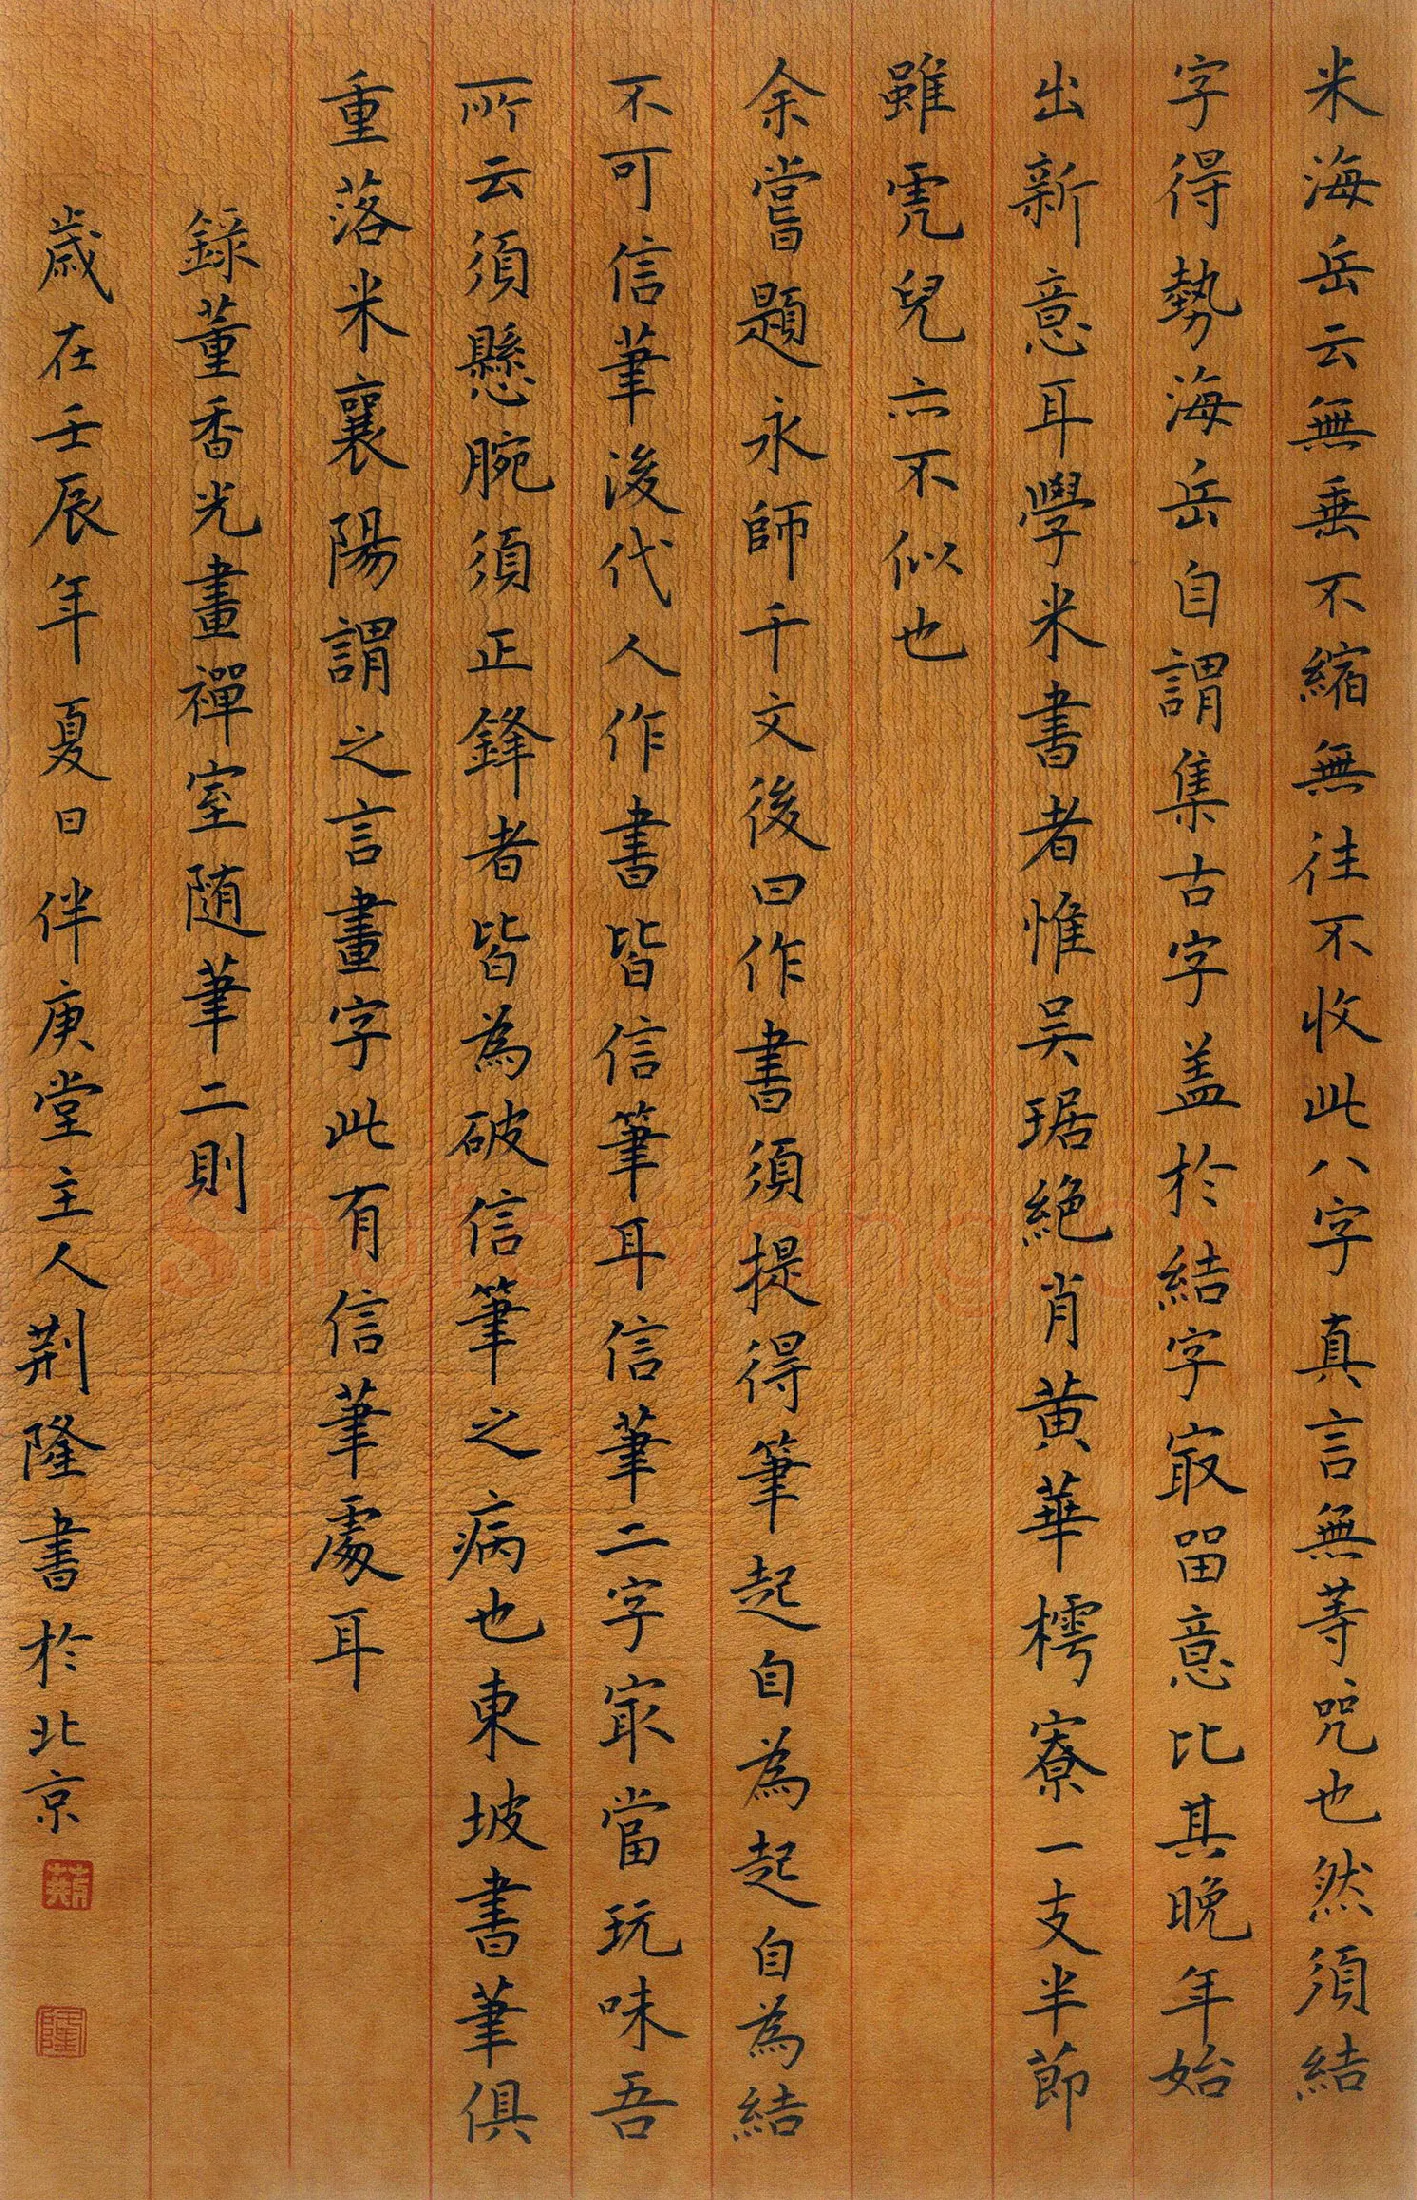 米海岳云無垂不縮無往不收此八字真言無等咒也然須結
字得勢海岳自謂集古字盖於結字㝡留意比其晚年始
出新意耳學米書者惟吴琚絶肖黄華樗寮一支半節
雖虎兒亦不似也
余嘗題永師千文後曰作書須提得筆起自為起自為結
不可信筆後代人作書皆信筆耳信筆二字㝡當玩味吾
所云須懸腕須正鋒者皆為破信筆之病也東坡書筆俱
重落米襄陽謂之言畫字此有信筆處耳
錄董香光畫禪室随筆二則
歲在壬辰年夏日伴庚堂主人荆隆書於北京
荆
隆